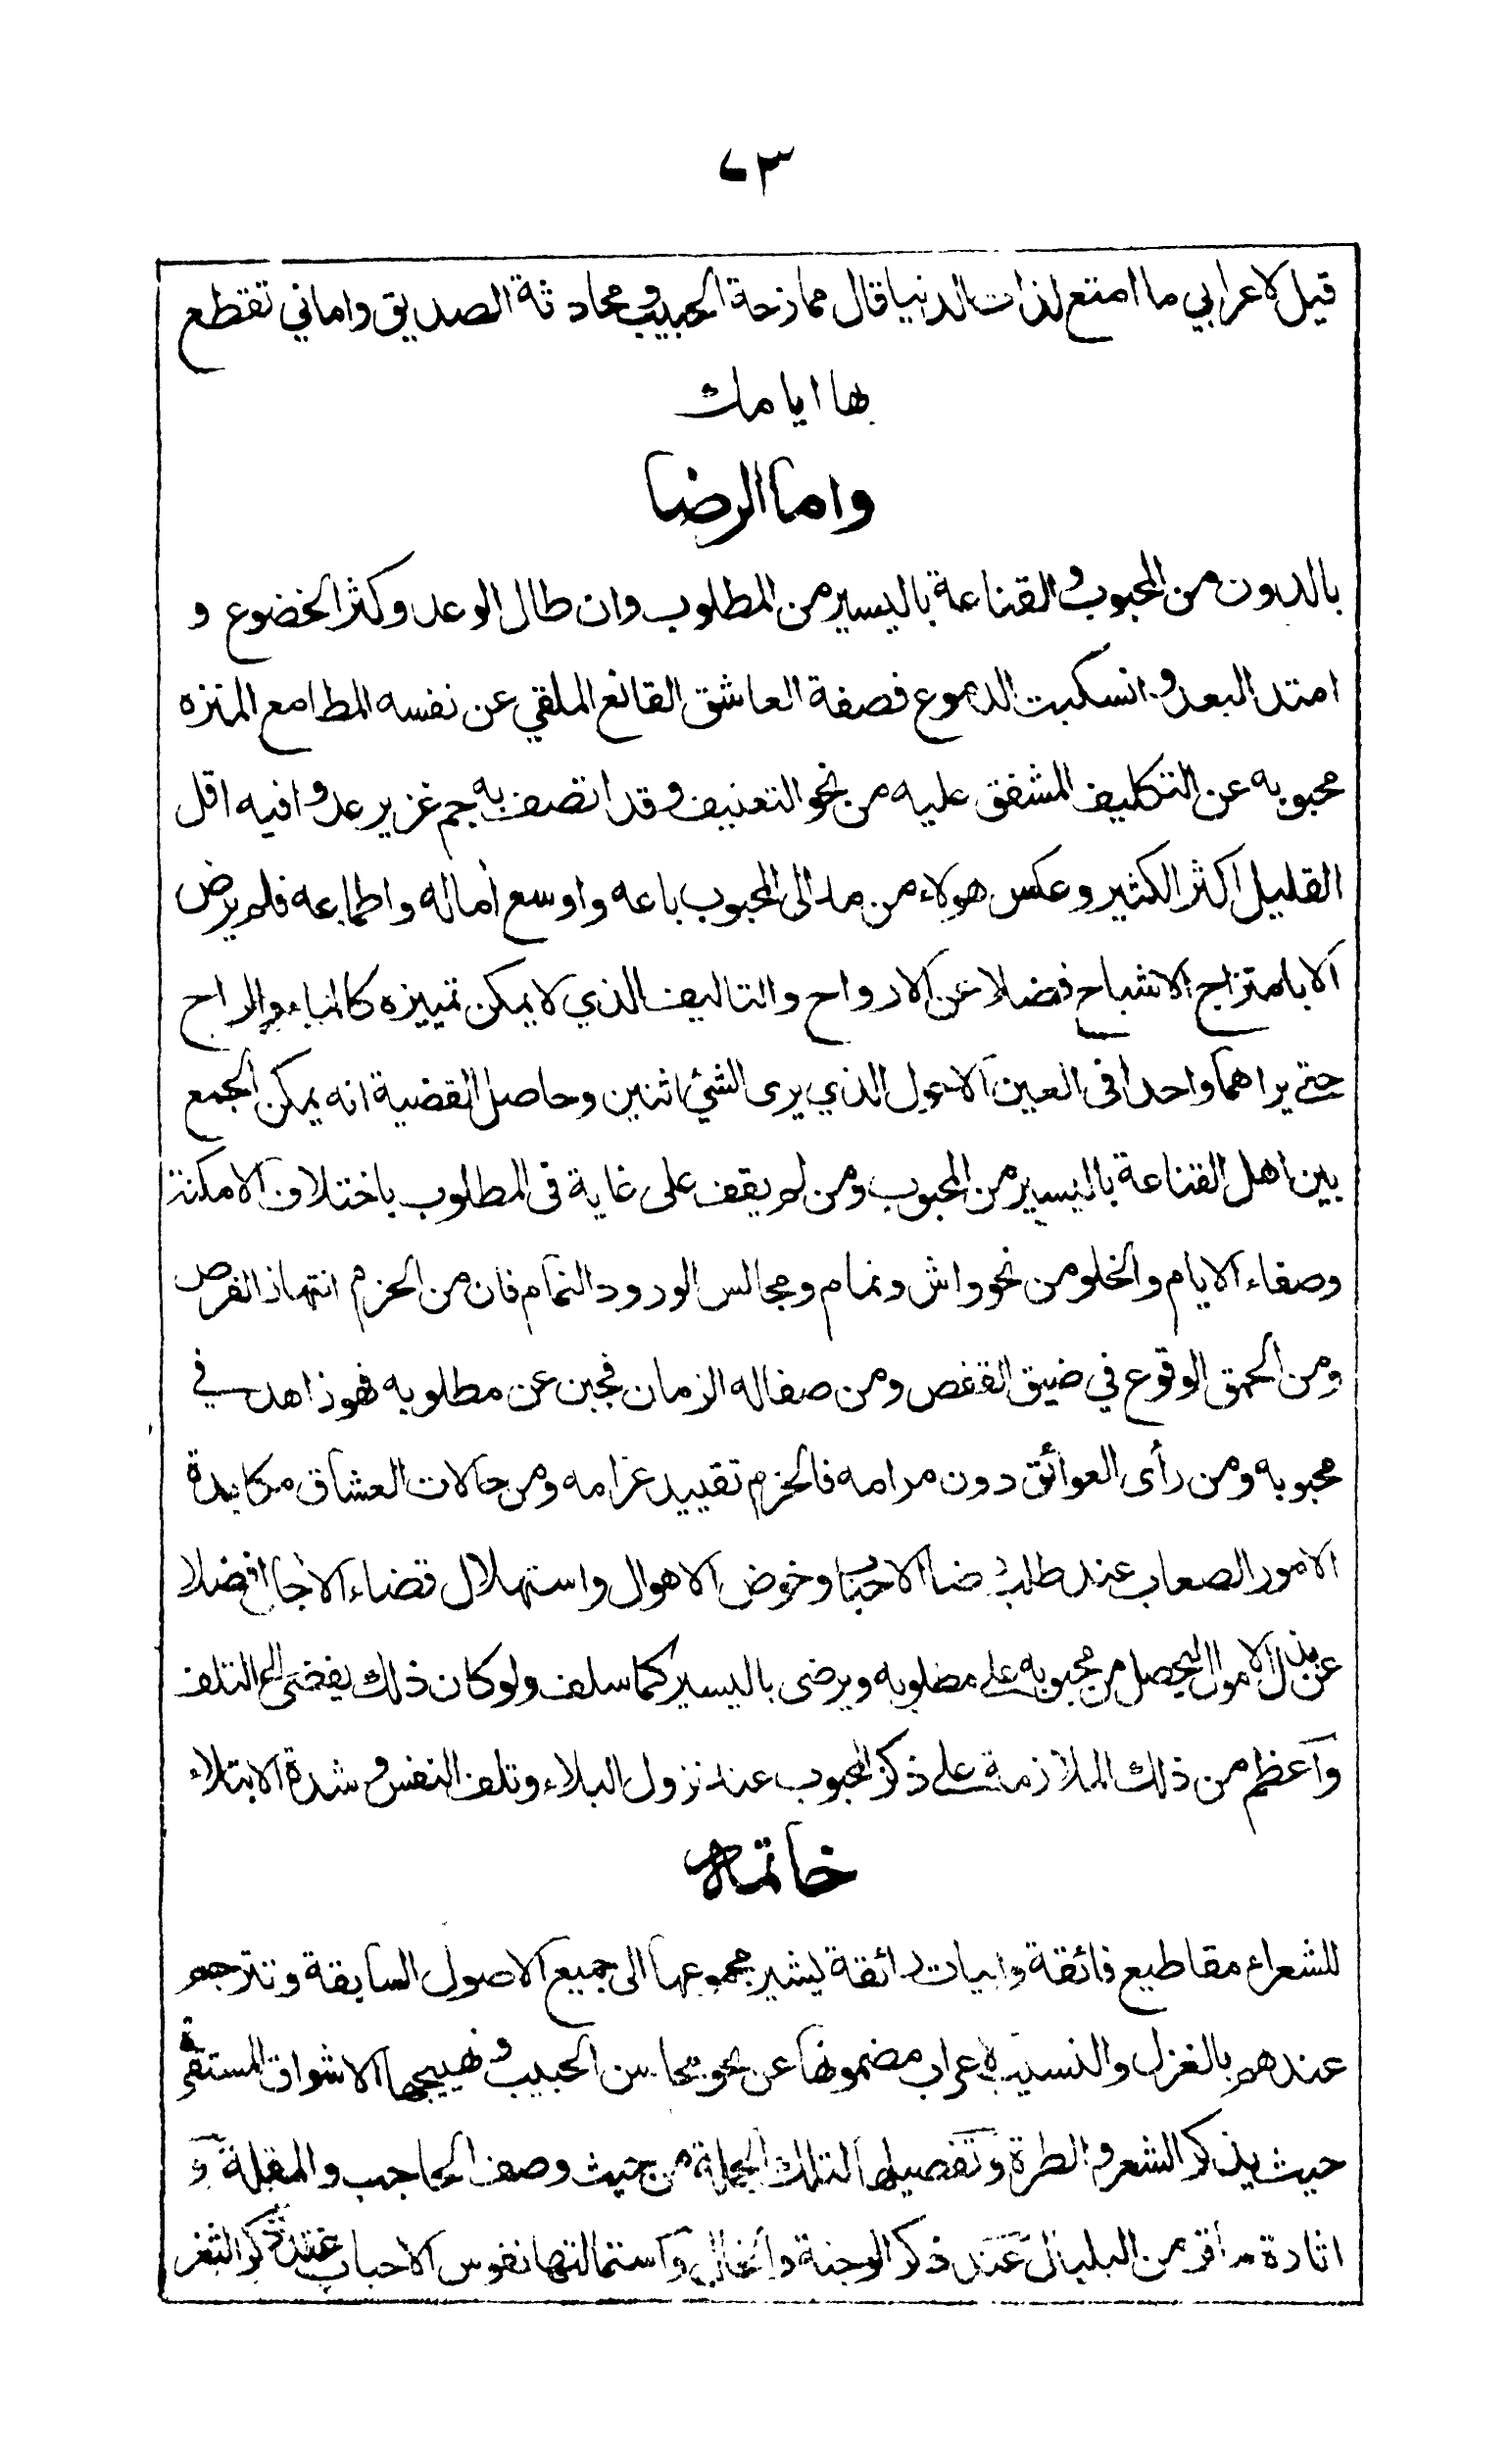 ٧٣
قيل لاعرابي ما امتع لذات الدنيا قال ممازحة الحبيب ومحادثة الصديق واماني تقطع
بها ايامك
واما الرضا
بالدون من المحبوب والقناعة باليسير من المطلوب وان طال الوعد وكثر الخضوع و
امتد البعد وانسكبت الدموع فصفة العاشق القانع الملقي عن نفسه المطامع المنزه
محبوبه عن التكليف المشفق عليه من نحو التعنيف وقد اتصف به جم غزير عدوا فيه اقل
القليل اكثر الكثير وعكس هولاء من مد الى المحبوب باعه واوسع أماله واطماعه فلم يرض
الا بامتزاج الاشباح فضلا عن الارواح والتاليف الذي لا يمكن تمييزه كالماء والراح
حتى يراهما واحدا في العين الاحول الذي يرى الشئ اثنين وحاصل القضية انه يمكن الجمع
بين اهل القناعة باليسير من المحبوب ومن لم يقف على غاية في المطلوب باختلاف الامكنة
وصفاء الايام والخلو من نحو واش ونمام ومجالس الورود النمام فان من الحزم انتهاز الفرص
ومن الحمق الوقوع في ضيق القفص ومن صفا له الزمان فجبن عن مطلوبه فهو زاهد في
محبوبه ومن رأى العوائق دون مرامه فالحزم تقييد غرامه ومن حالات العشاق مكابدة
الامور الصعاب عند طلب رضا الاحباب وخوض الاهوال واستهلال قضاء الأجال فضلا
عن بذل الاموال ليحصل من محبوبه على مطلوبه ويرضى باليسير كما سلف ولو كان ذلك يفضى الى التلف
واعظم من ذلك الملازمة على ذكر المحبوب عند نزول البلاء وتلف النفس وشدة الابتلاء
خاتمة
للشعراء مقاطيع فائقة وابيات رائقة يشير مجموعها الى جميع الاصول السابقة وتترجم
عندهم بالغزل والنسيب لاعراب مضمونها عن نحو محاسن الحبيب وتهييجها الاشواق المستقرة
حيث يذكر الشعر والطرة وتفصيلها لتلك الجملة من حيث وصف الحاجب والمقلة و
اثارة ما قر من البلبال عند ذكر الوجنة والخال واستمالتها نفوس الاحباب عند ذكر الثغر